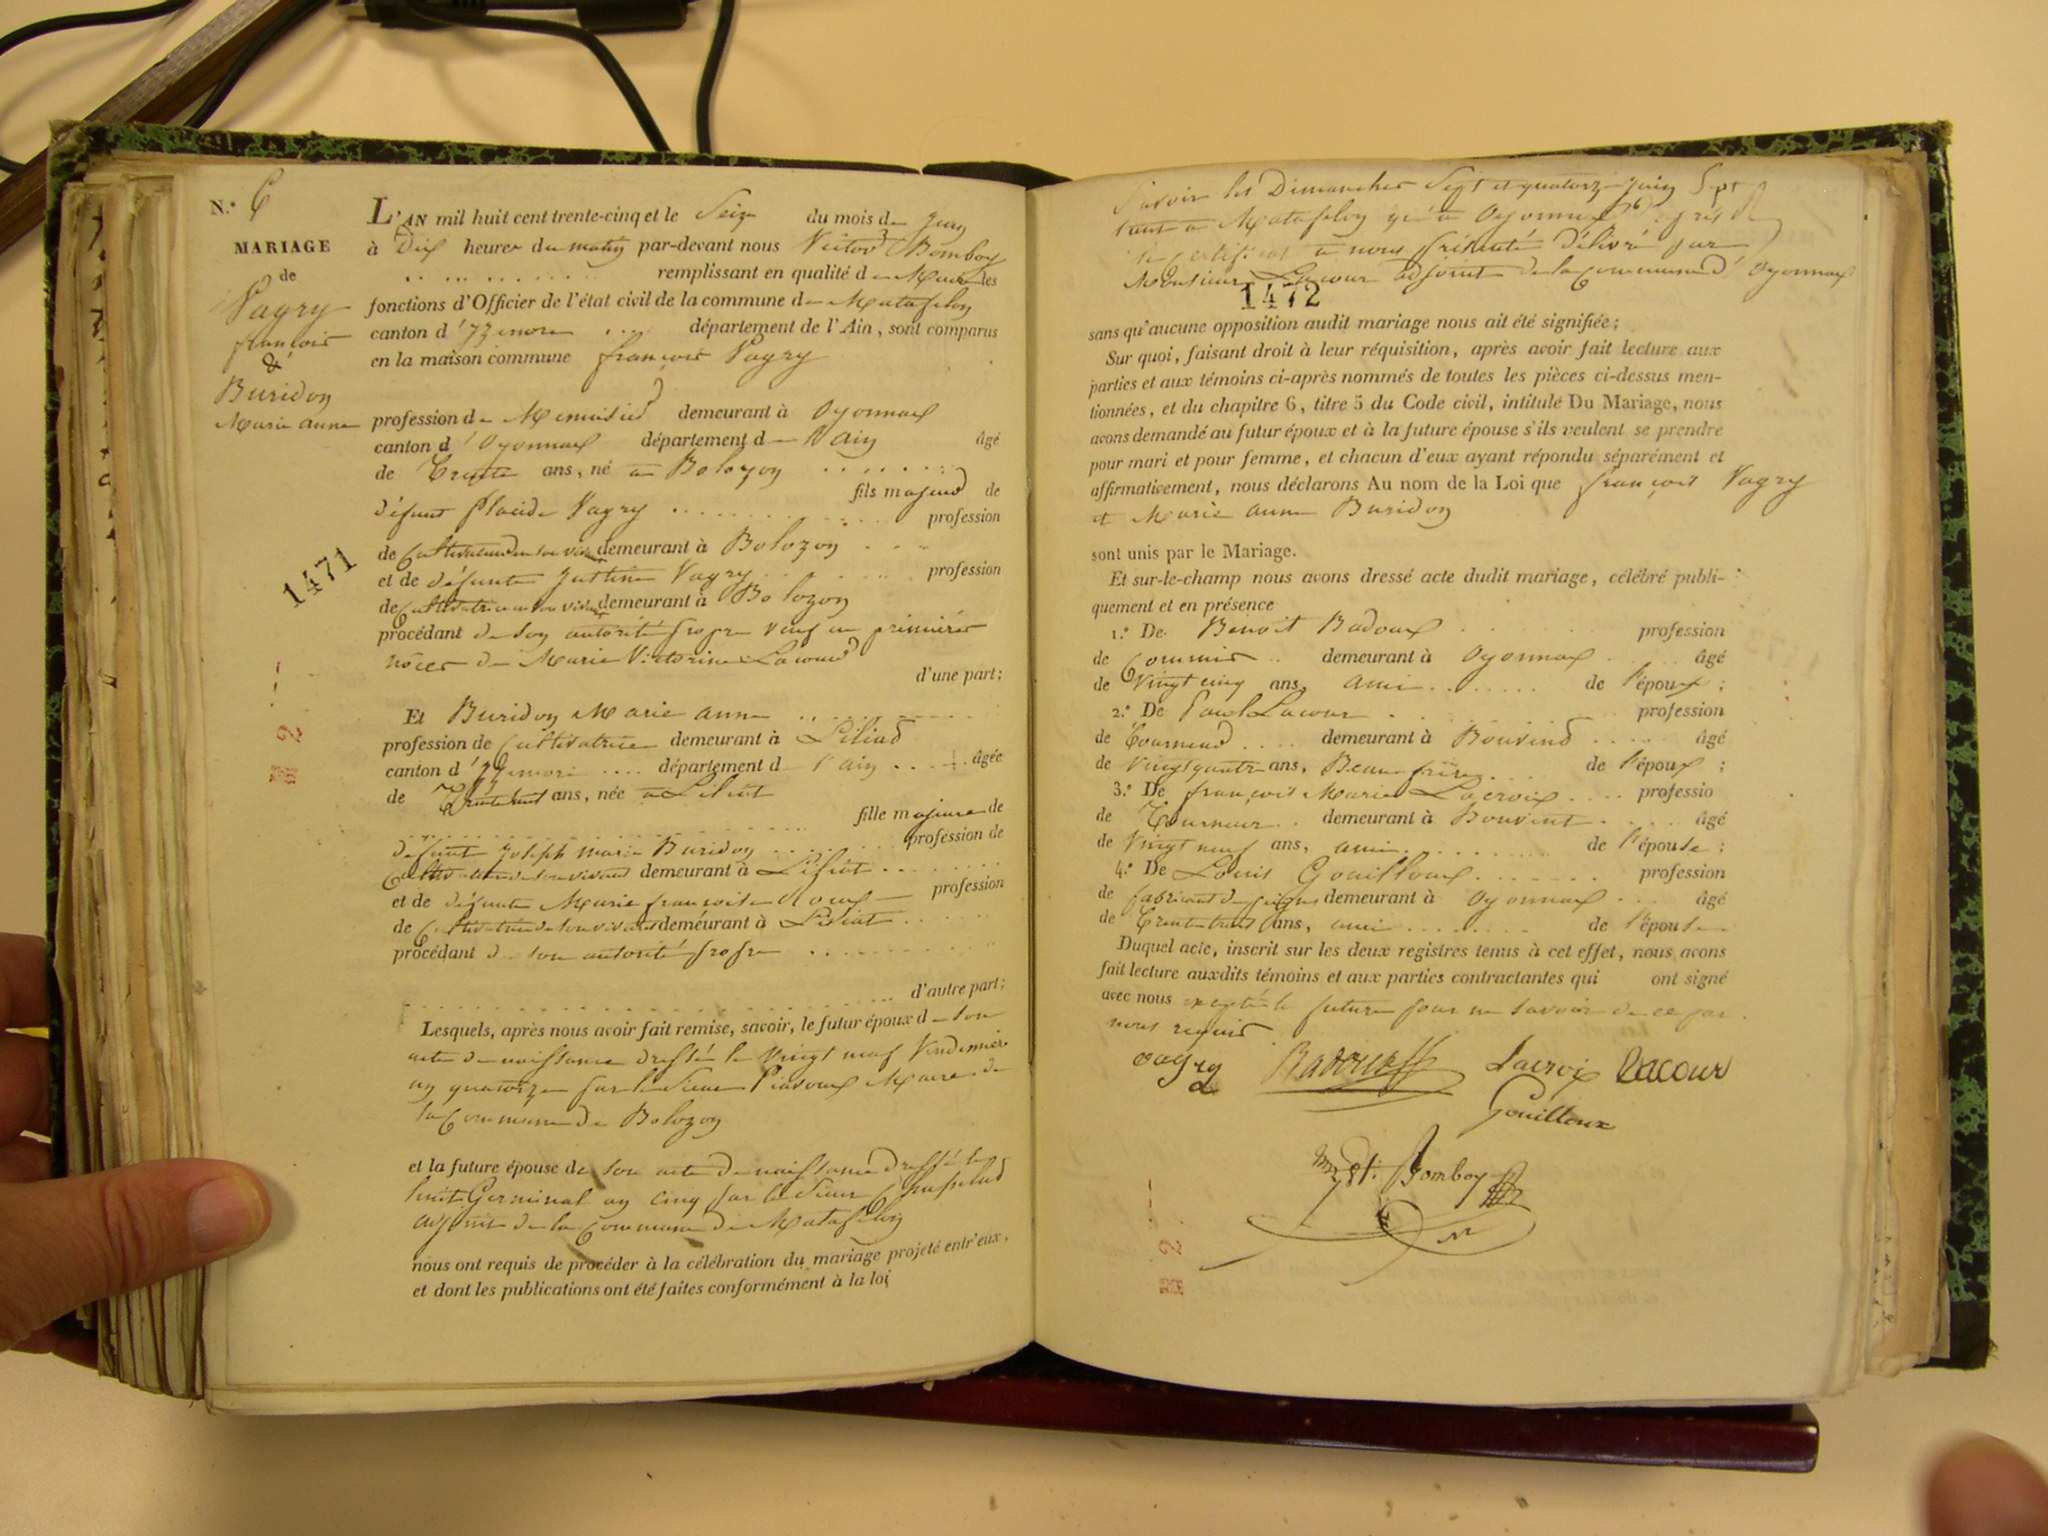 N.° 6
MARIAGE
de
Vagry
françois
&
Buridon
Marie anne
1471
L'AN mil huit cent trente-cinq et le Seize du mois de Juin
à Dix heures du matin par-devant nous Victor Bomboy
remplissant en qualité de Maire les
fonctions d'Officier de l'état civil de la commune de Matafelon
canton d'Izernore département de l'Ain, sont comparus
en la maison commune françois Vagry
profession de Menuisier demeurant à Oyonnax
canton d'Oyonnax département de l'Ain âgé
de Trente ans, né à Bolozon
fils majeur de
défunt Placide Vagry profession
de Cultivateur de son vivant demeurant à Bolozon
et de défunte Justine Vagry profession
de Cultivatrice en son vivant demeurant à Bolozon
procédant de son autorité propre veuf en premières
nôces de Marie Victorine Lacour
d'une part;
Et Buridon Marie anne
profession de Cultivatrice demeurant à Liliat
canton d'Izernore département de l'ain âgée
de Trente huit ans, née à Liliat
fille majeure de
défunt Joseph marie Buridon profession de
Cultivateur de son vivant demeurant à Liliat
et de défunte Marie françoise profession
de Cultivatrice de son vivant demeurant à Liliat
procédant de son autorité propre
d'autre part;
Lesquels, après nous avoir fait remise, savoir, le futur époux de son
acte de naissance dressé le Vingt neuf Vendémiaire
an quatorze par le Sieur Maire de
la Commune de Bolozon
et la future épouse de son acte de naissance dressé le
huit Germinal an cinq par le Sieur
adjoint de la Commune de Matafelon
nous ont requis de procéder à la célébration du mariage projeté entr'eux,
et dont les publications ont été faites conformément à la loi
Savoir les Dimanches Sept et quatorze Juin
tant à Matafelon qu'à Oyonnax
certificat à nous présenté délivré par
Monsieur Lacour adjoint de la Commune d'Oyonnax
1472
sans qu'aucune opposition audit mariage nous ait été signifiée;
Sur quoi, faisant droit à leur réquisition, après avoir fait lecture aux
parties et aux témoins ci-après nommés de toutes les pièces ci-dessus men-
tionnées, et du chapitre 6, titre 5 du Code civil, intitulé Du Mariage, nous
avons demandé au futur époux et à la future épouse s'ils veulent se prendre
pour mari et pour femme, et chacun d'eux ayant répondu séparément et
affirmativement, nous déclarons Au nom de la Loi que françois Vagry
et Marie anne Buridon
sont unis par le Mariage.
Et sur-le-champ nous avons dressé acte dudit mariage, célébré publi-
quement et en présence
1.° De Benoit Badoux profession
de Commis demeurant à Oyonnax âgé
de Vingt cinq ans, ami de l'époux;
2.° De Paul Lacour profession
de Tourneur demeurant à Bouvent âgé
de Vingt quatre ans, Beau frère de l'époux;
3.° De françois Marie Lacroix professio
de Tourneur demeurant à Bouvent âgé
de Vingt neuf ans, ami de l'épouse;
4.° De Louis Gouilloux profession
de fabricant de peignes demeurant à Oyonnax âgé
de Trente huit ans, ami de l'épouse
Duquel acte, inscrit sur les deux registres tenus à cet effet, nous avons
fait lecture auxdits témoins et aux parties contractantes qui ont signé
avec nous excepté la future pour ne savoir de ce par
nous requis
vagry Badoux Lacroix Lacour
Gouilloux
Bomboy